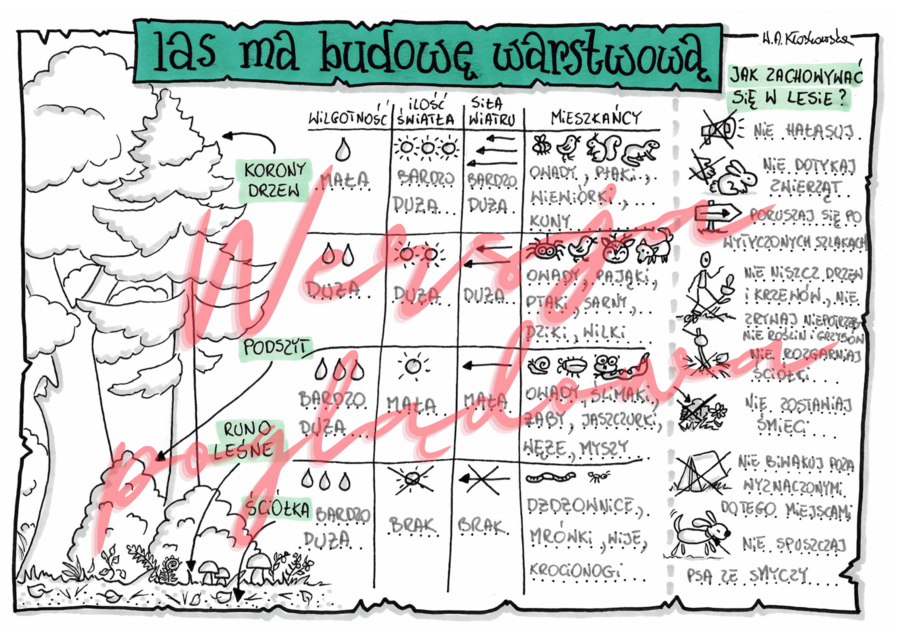 las ma budowę warstwową
H.A. Kłoskowska
WILGOTNOŚĆ
ILOŚĆ
ŚWIATŁA
SIŁA
WIATRU
MIESZKAŃCY
KORONY
DRZEW
MAŁA
BARDZO
DUŻA
BARDZO
DUŻA
OWADY, PTAKI,
WIEWIÓRKI,
KUNY
PODSZYT
DUŻA
DUŻA
DUŻA
OWADY, PAJĄKI,
PTAKI, SARNY,
DZIKI, WILKI
RUNO
LEŚNE
BARDZO
DUŻA
MAŁA
MAŁA
OWADY, ŚLIMAKI,
ŻABY, JASZCZURKI,
WĘŻE, MYSZY
ŚCIÓŁKA
BARDZO
DUŻA
BRAK
BRAK
DŻDŻOWNICE,
MRÓWKI, WIJE,
KROCIONOGI
JAK ZACHOWYWAĆ
SIĘ W LESIE?
NIE HAŁASUJ
NIE DOTYKAJ
ZWIERZĄT
PORUSZAJ SIĘ PO
WYTYCZONYCH SZLAKACH
NIE NISZCZ DRZEW
I KRZEWÓW, NIE
ZRYWAJ NIEPOTRZEB
NIE ROŚLIN I GRZYBÓW
NIE ROZGARNIAJ
ŚCIÓŁKI
NIE ZOSTAWIAJ
ŚMIECI
NIE BIWAKUJ POZA
WYZNACZONYMI
DO TEGO MIEJSCAMI
NIE SPUSZCZAJ
PSA ZE SMYCZY
Wersja
poglądowa